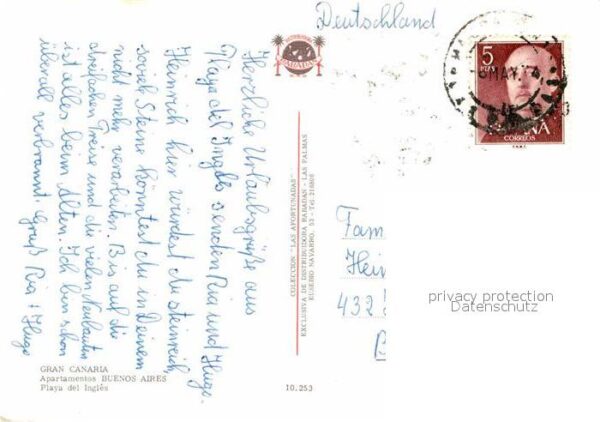 Deutschland
BABADAN
5
PTAS
MAY. 74
CORREOS
Herzliche Urlaubsgrüße aus
Playa del Ingles senden Ria und Hugo.
Heinrich hier würdest du steinreich,
soviel Steine könntest du in Deinem
nicht mehr verarbeiten. Bis auf die
dreifachen Preise und die vielen Neubauten
ist alles beim Alten. Ich bin schon
überall verbrannt. Gruß Ria + Hugo
COLECCION "LAS AFORTUNADAS"
EXCLUSIVA DE DISTRIBUIDORA BABADAN - LAS PALMAS
EUSEBIO NAVARRO, 53 - Tel.
Fam
Hein
432
privacy protection
Datenschutz
GRAN CANARIA
Apartamentos BUENOS AIRES
Playa del Inglés
10.253